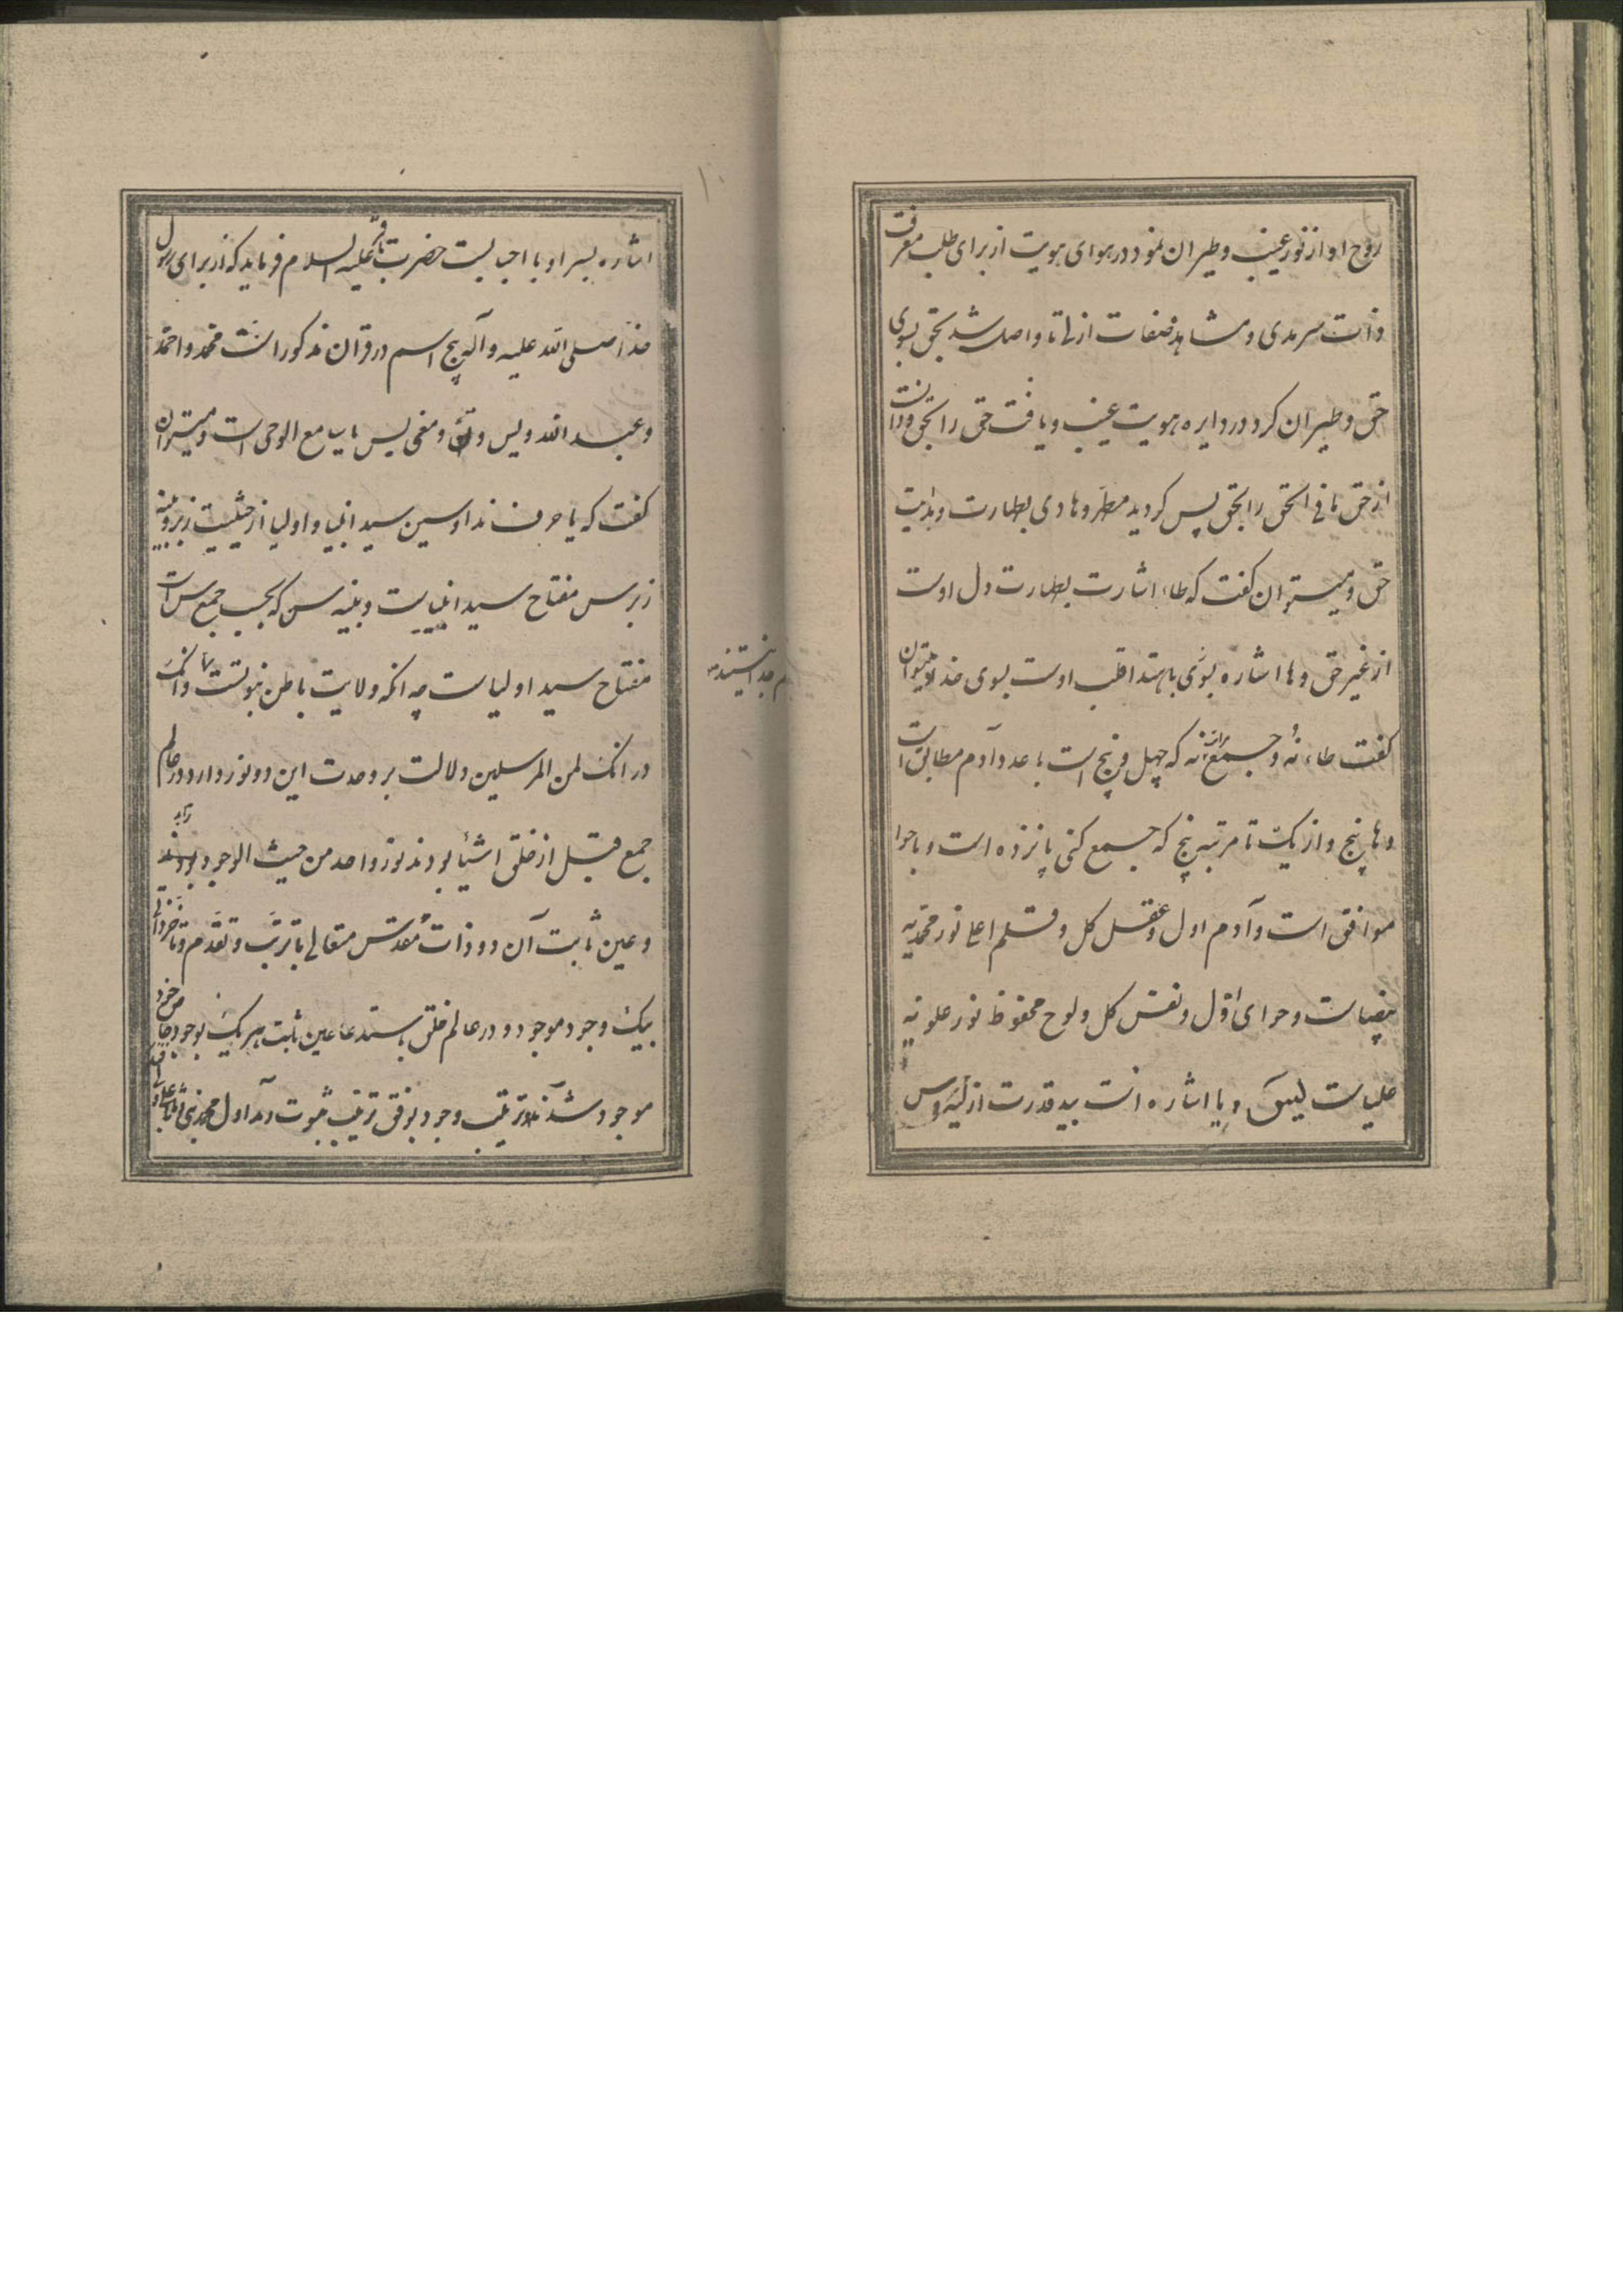 روح او از نور غیب و طیران نمود در هوای هویت از برای طلب معرفت
ذات سرمدی و مشاهد صفات ازلی تا واصل شد بحق بسوی
حق و طیران کرد در دایره هویت غیب و یافت حق را بحق و دانست
از حق ما فی الحق را بحق پس کردید مطهر و هادی بطهارت و هدایت
حق و میتوان کفت که طاء اشارت بطهارت دل اوست
از غیر حق و ها اشاره بسوی باهتداء قلب اوست بسوی خدا و میتوان
کفت طاء نه و جمع مراتب نه که چهل و پنج است با عدد آدم مطابق است
و ها پنج و از یک تا مرتبه پنج که جمع کنی پانزده است و با حوا
موافق است و آدم اول و عقل کل و قلم اعلی نور محمدیه
بیضیاست و حوای اول و نفس کل و لوح محفوظ نور علویه
علیاست یس و یا اشاره است بید قدرت ازلیه و س
اشاره بسر او با احبا بست حضرت باقر علیه السلام فرماید که از برای رسول
خدا صلی الله علیه و آله پنج اسم در قران مذکور است محمد و احمد
و عبد الله و یس و ن و معنی یس یا سامع الوحی است و میتوان
کفت که یا حرف ندا و سین سید انبیا و اولیا از حیثیت زبر و بینه
زبر س مفتاح سید انبیاست و بینه س که بحسب جمع س است
مفتاح سید اولیاست چه انکه ولایت باطن نبوتست و انک
در انک لمن المرسلین دلالت بر وحدت این دو نور دارد و در عالم
جمع قبل از خلق اشیا بودند نور واحد من حیث الوجود
و عین ثابت آن دو ذات مقدس متعالی با ترتب و تقدم و تاخر ازلی
بیک وجود موجود و در عالم خلق باستدعا عین ثابت هر یک بوجود خاص خود
موجود شدند و ترتیب وجود بوفق ترتیب ثبوت آمد اول محمد نبی